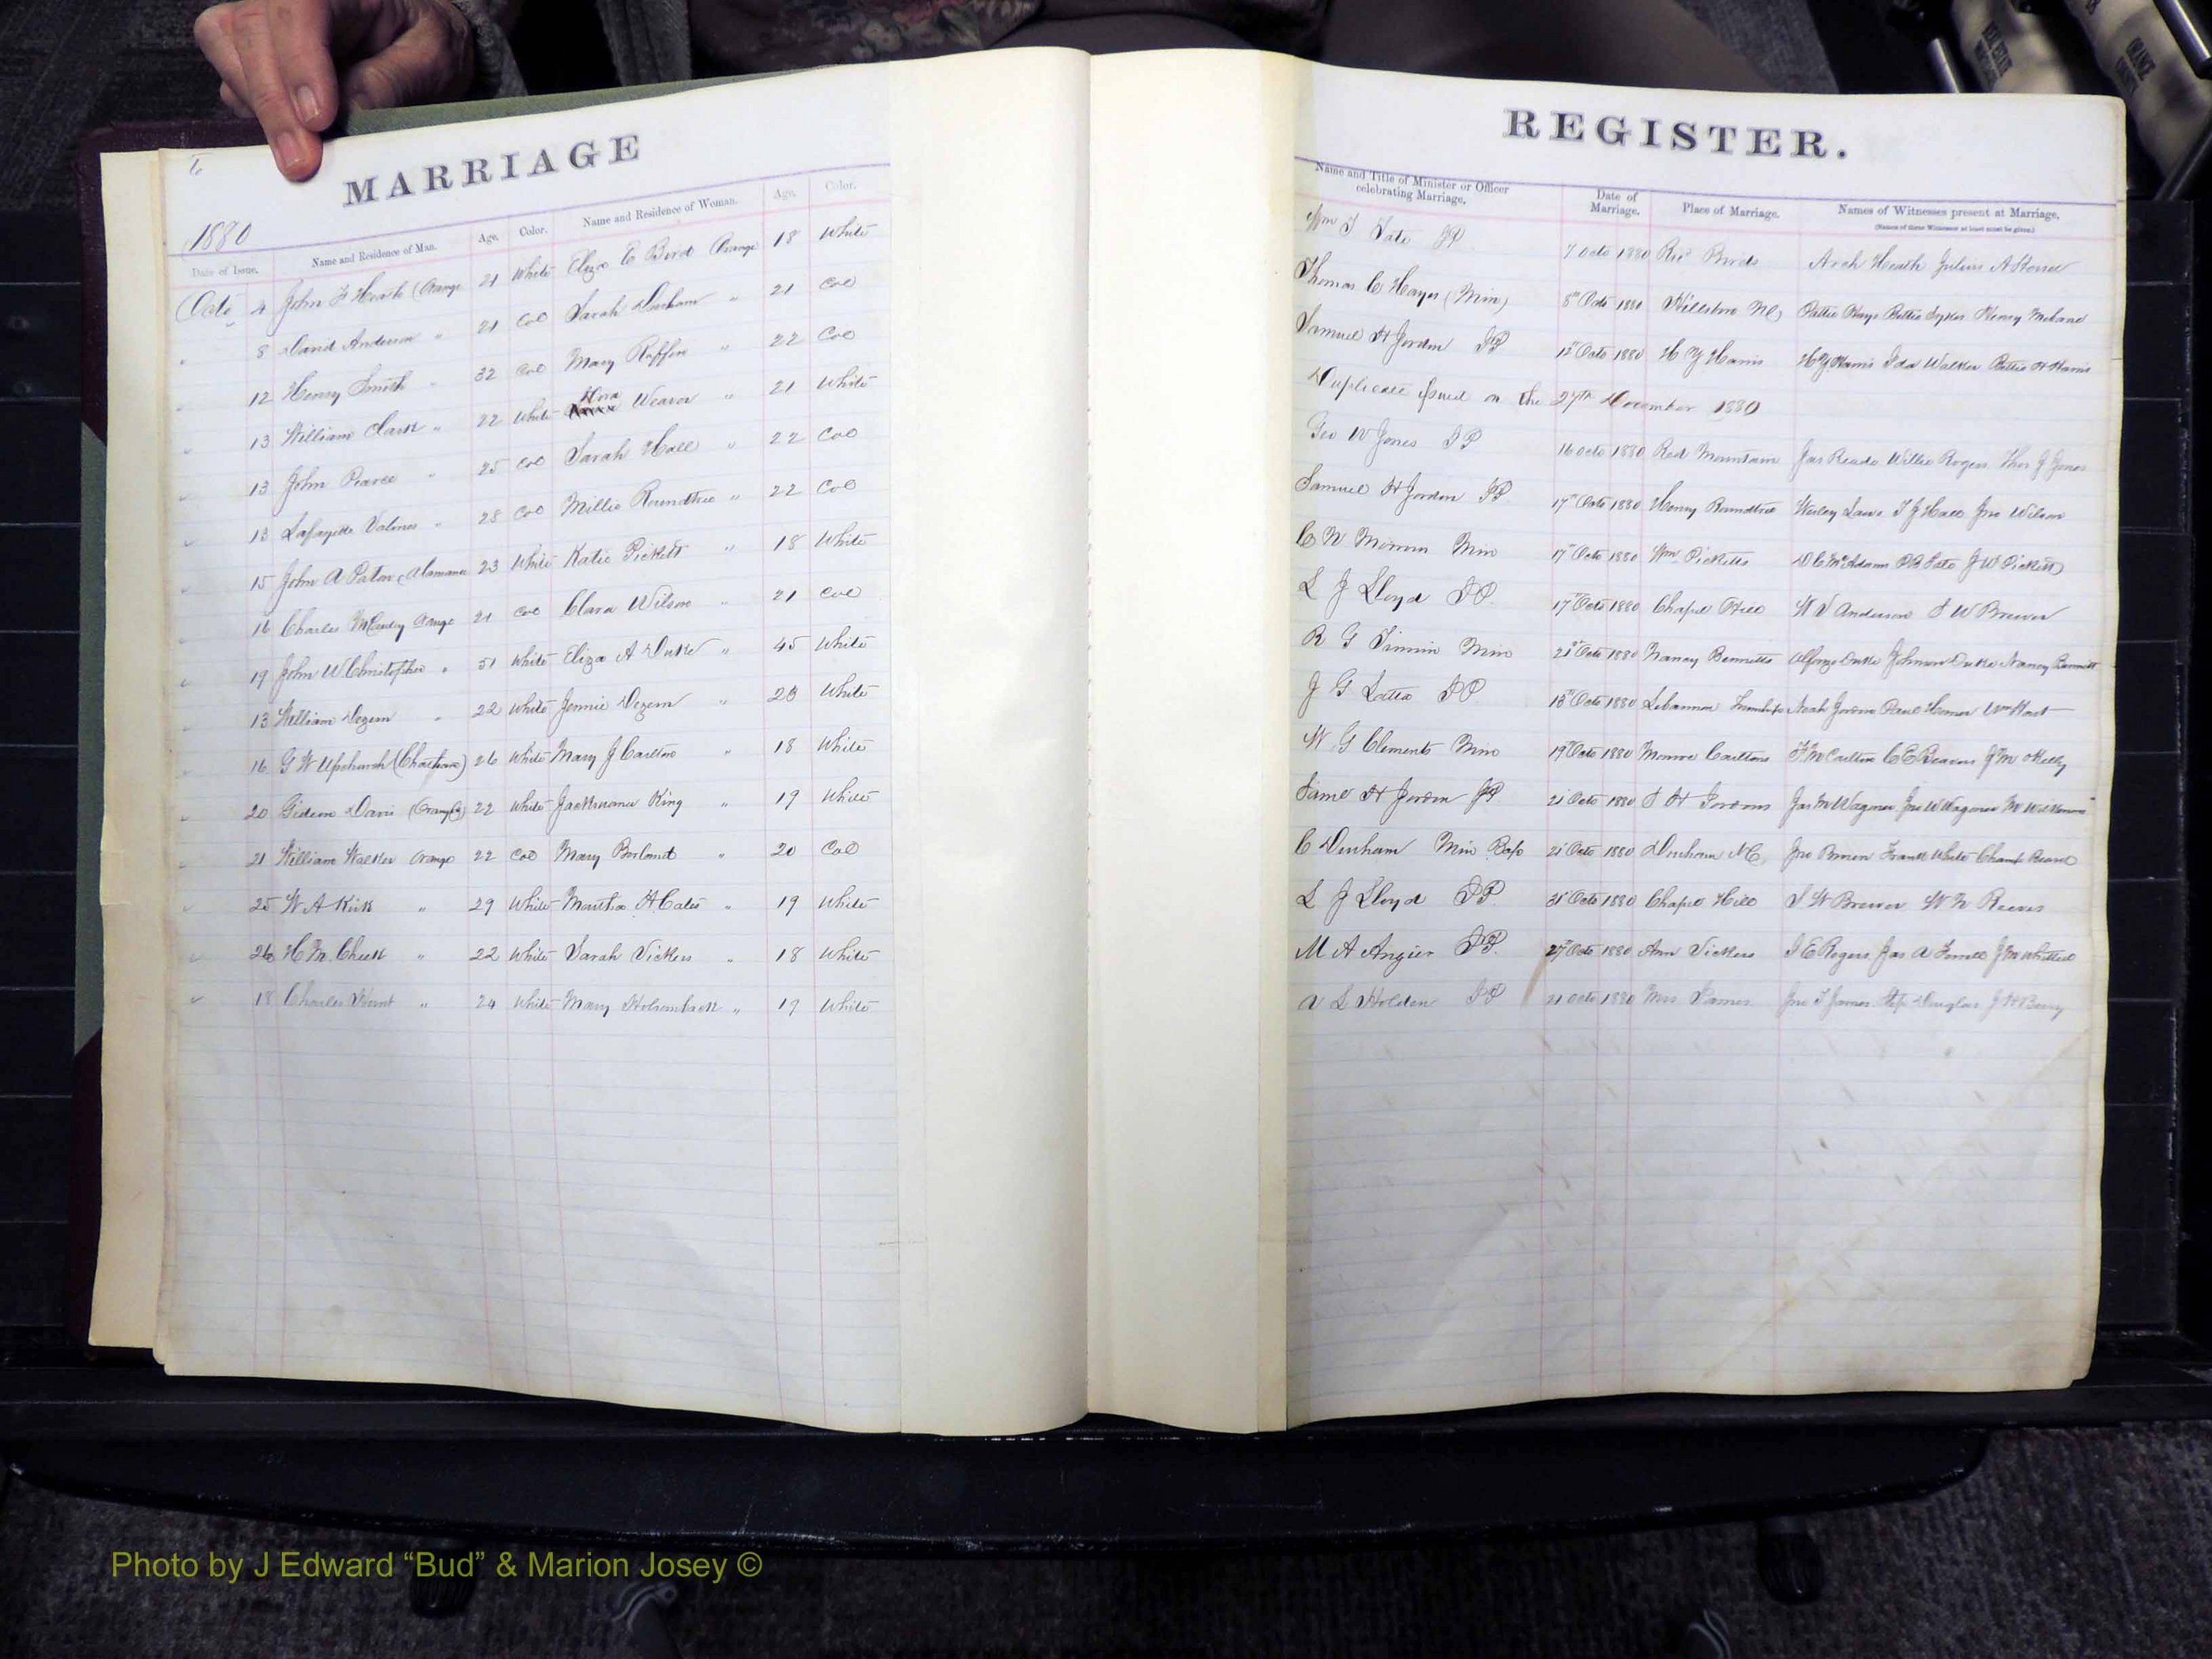 6
MARRIAGE
1880
Date of Issue. Name and Residence of Man. Age. Color. Name and Residence of Woman. Age. Color.
Octo 4 John F Heath (Orange 21 White Eliza E Bird Orange 18 White
8 David Anderson " 21 Col Sarah Durham " 21 Col
12 Henry Smith " 32 Col Mary Ruffin " 22 Col
13 William Clark " 22 White Weaver " 21 White
13 John Pearce " 25 Col Sarah Hall " 22 Col
13 Lafayette " 28 Col Millie Roundtree " 22 Col
15 John A Paton (Alamance 23 White Katie Pickett " 18 White
16 Charles McCauley Orange 21 Col Clara Wilson " 21 Col
19 John W Christopher " 51 White Eliza A Duke " 45 White
13 William Dezern " 22 White Jennie Dezern " 23 White
16 G W Upchurch (Chatham) 26 White Mary J Carlton " 18 White
20 Gideon Davis (Orange) 22 White King " 19 White
21 William Walker Orange 22 Col Mary Borland " 20 Col
25 W A Kirk " 29 White Martha H Cates " 19 White
26 H M Cheek " 22 White Sarah Vickers " 18 White
18 Charles Hunt " 24 White Mary " 19 White
REGISTER.
Name and Title of Minister or Officer celebrating Marriage. Date of Marriage. Place of Marriage. Names of Witnesses present at Marriage.
(Names of three Witnesses at least must be given.)
Wm J Tate JP 7 Octo 1880 Birds Arch Heath Julius A
Thomas C Hayes (Min) 8" Octo 1880 Hillsboro NC Pattie Hays Bettie Sykes Henry Mebane
Samuel H Jordon JP 12" Octo 1880 H Y Harris H Y Harris Ida Walker Bettie H Harris
Duplicate Issued on the 27th November 1880
Geo W Jones JP 16 Octo 1880 Red Mountain Jas Reade Willie Rogers Thos J Jones
Samuel H Jordon JP 17" Octo 1880 Henry Roundtree Wesley Laws T J Hall Jno Wilson
C N Morrow Min 17" Octo 1880 Wm Picketts D C McAdams P B Tate J W Pickett
L J Lloyd JP 17" Octo 1880 Chapel Hill W J Anderson J W Brewer
R G Tinnin Min 21" Octo 1880 Nancy Bennetts Alfonzo Duke Johnson Duke Nancy Bennett
J G Latta JP 13" Octo 1880 Lebannon Township Noah Jordon Paul Homer Wm Hart
W G Clements Min 19" Octo 1880 Monroe Carltons F M Carlton C E Beavers J M Kelly
Saml H Jordon JP 21" Octo 1880 S H Jordons Jas M Wagoner Jno W Wagoner
C Durham Min Bap 21" Octo 1880 Durham NC. Jno Brown Frank White
L J Lloyd JP 31" Octo 1880 Chapel Hill J W Brewer W N Reeves
M A Angier JP. 27" Octo 1880 Ann Vickers J E Rogers Jas A Ferrell J M Whitted
A L Holden JP 21 Octo 1880 Mrs James Jno T James Douglas J H Berry
Photo by J Edward “Bud” & Marion Josey ©